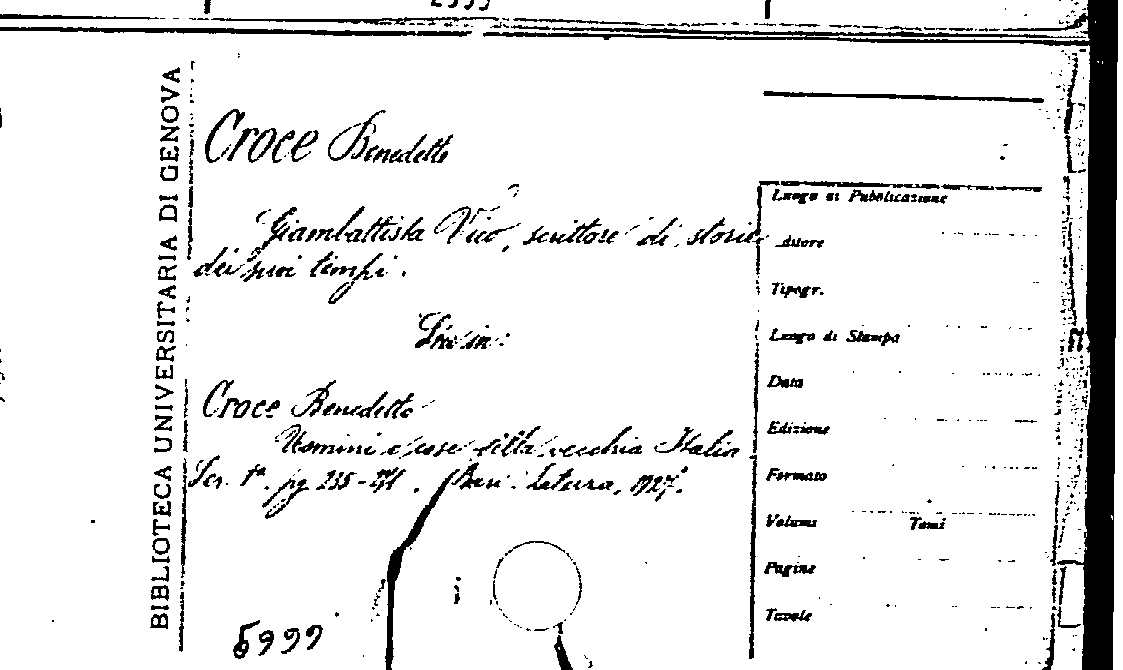 BIBLIOTECA UNIVERSITARIA DI GENOVA
Croce Benedetto
Giambattista Vico, scrittore di storie
dei suoi tempi.
Sta in:
Croce Benedetto
Uomini e cose della vecchia Italia
Ser. 1ª. pg 235-
Bari. Laterza, 1927.
5999
Luogo di Pubblicazione
ditore
Tipogr.
Luogo di Stampa
Data
Edizione
Formato
Volume Tomi
Pagine
Tavole